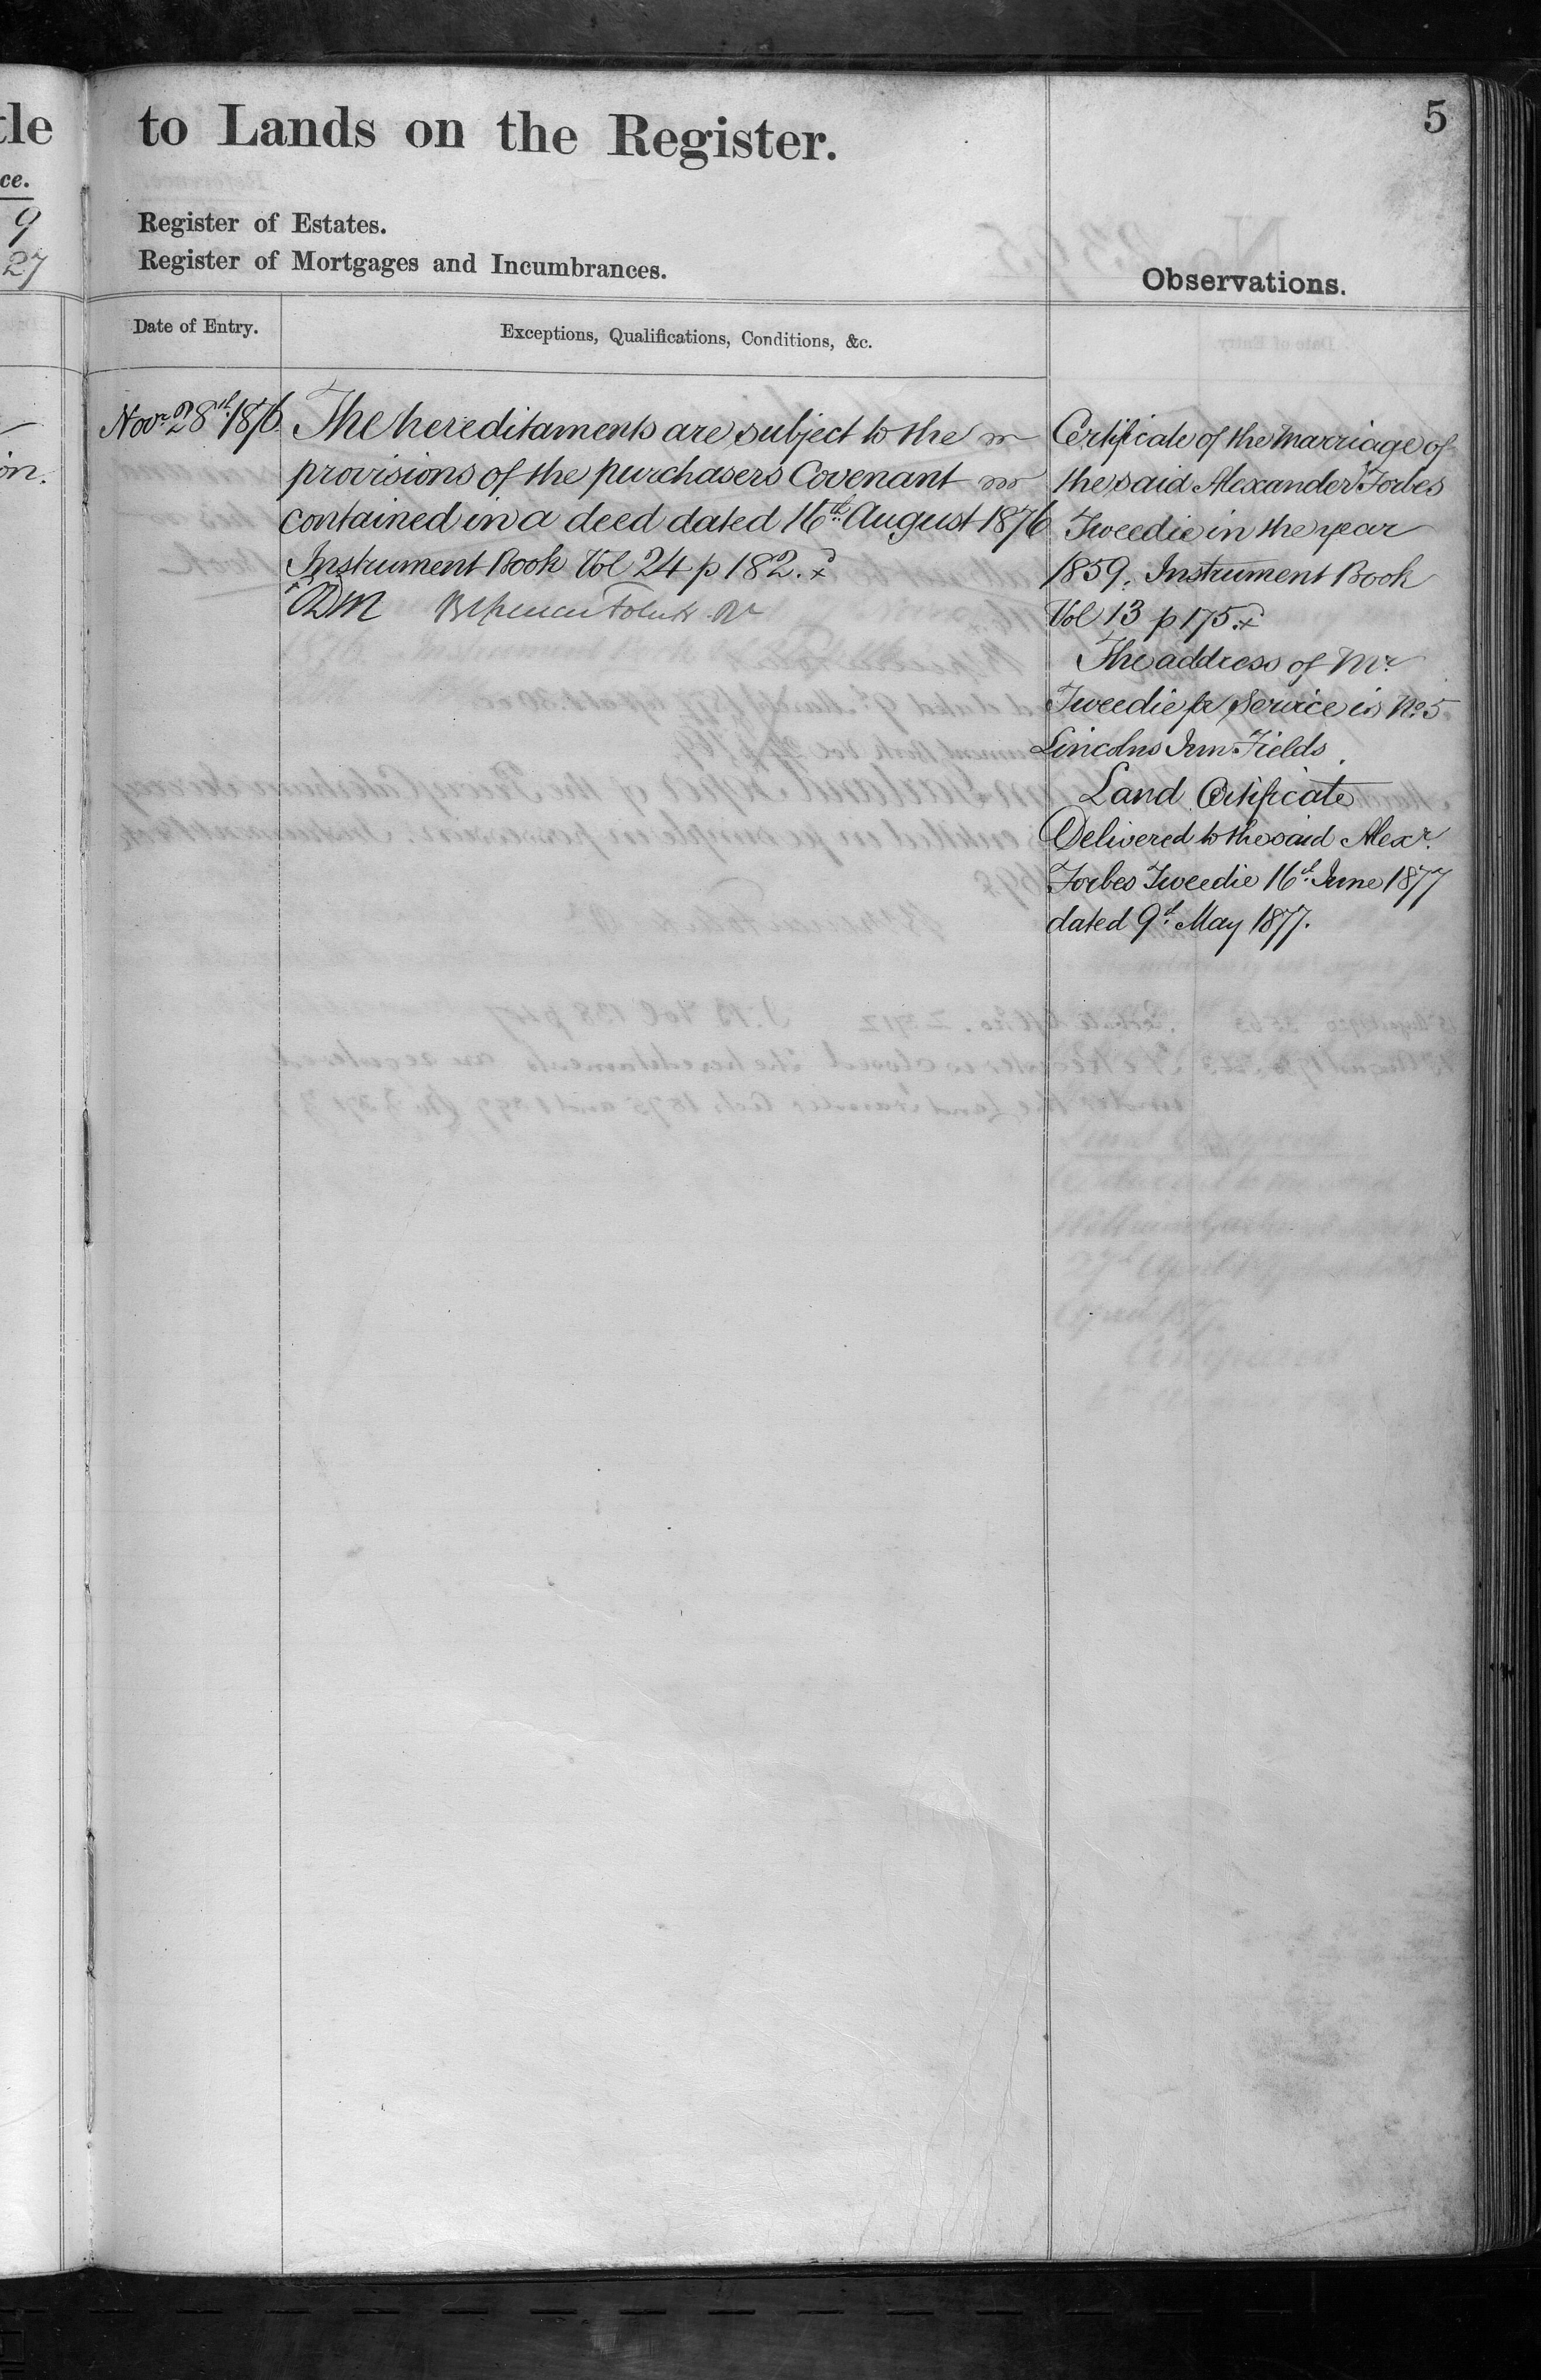 tle
ce.
9
27
on.
to Lands on the Register.
5
Register of Estates.
Register of Mortgages and Incumbrances.
Observations.
Date of Entry.
Exceptions, Qualifications, Conditions, &c.
Novr 28th 1876.
The hereditaments are subject to the
provisions of the purchasers Covenant
contained in a deed dated 16th August 1876
Instrument Book Vol 24 p 182. x
DM
Certificate of the marriage of
the said Alexander Forbes
Tweedie in the year
1859. Instrument Book
Vol 13 p 175. x
The address of Mr
Tweedie for Service is No 5
Lincolns Inn Fields.
Land Certificate
Delivered to the said Alexr.
Forbes Tweedie 16th June 1877
dated 9th May 1877.